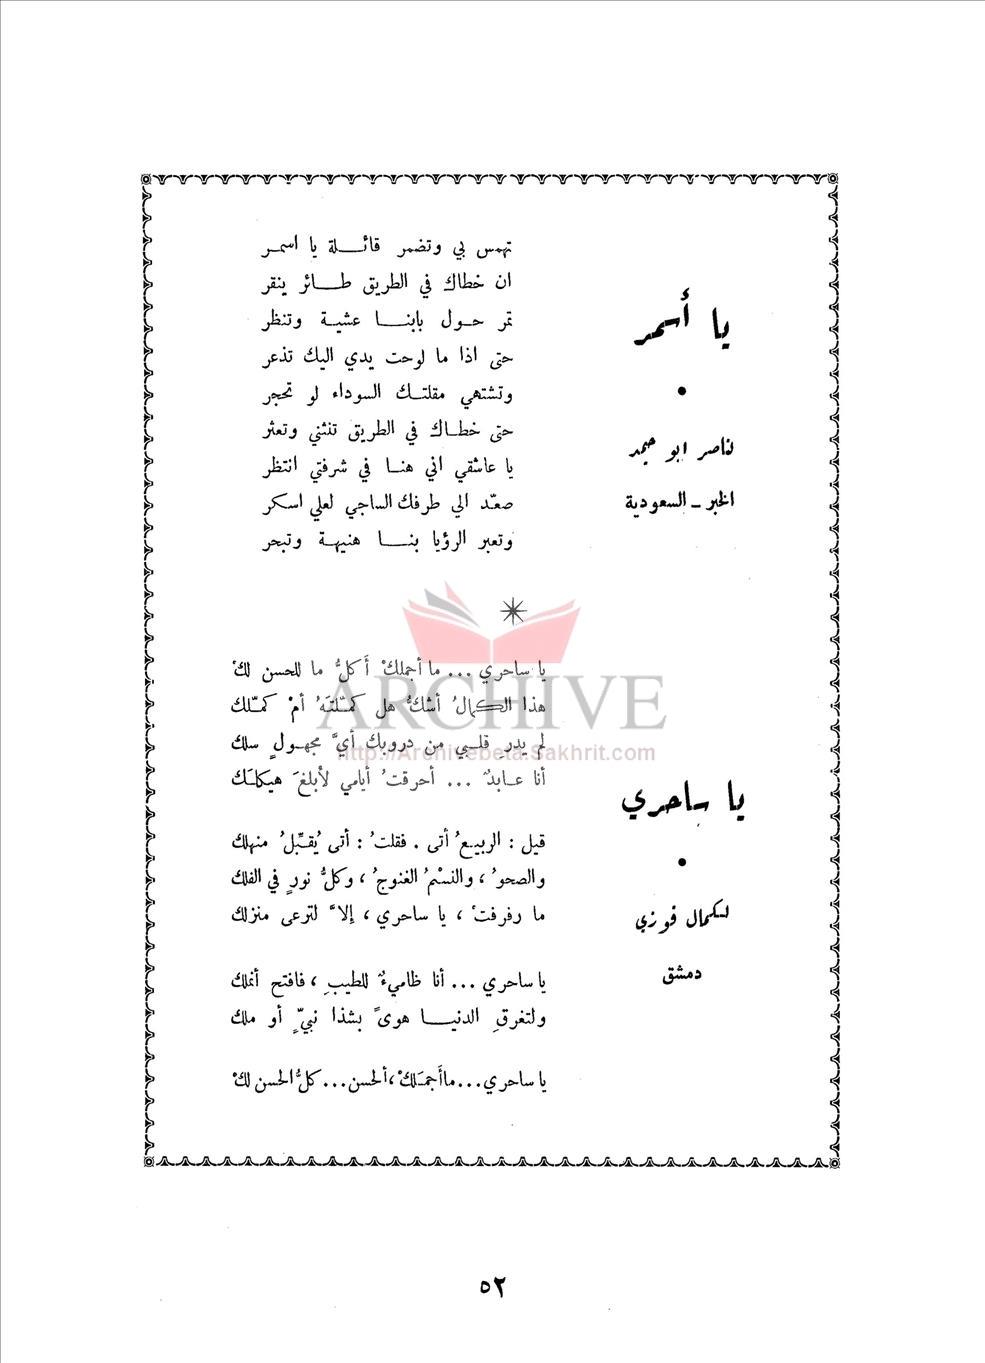 يا أسمر
•
لناصر ابو حيمد
الخبر ــ السعودية
تهمس بي وتضمر قائلة يا اسمر
ان خطاك في الطريق طائر ينقر
تمر حول بابنا عشية وتنظر
حتى اذا ما لوحت يدي اليك تذعر
وتشتهي مقلتك السوداء لو تحجر
حتى خطاك في الطريق تنثني وتعثر
يا عاشقي اني هنا في شرفتي انتظر
صعّد الي طرفك الساجي لعلي اسكر
وتعبر الرؤيا بنا هنيهة وتبحر
ARCHIVE
http://Archivebeta.Sakhrit.com
يا ساحري
•
لكمال فوزي
دمشق
يا ساحري ... ما أجملكْ أكلُّ ما للحسن لكْ
هذا الكمالُ أشكُّ هل كمّلتَهُ أمْ كمّلك
لم يدرِ قلبي من دروبك أيَّ مجهولٍ سلك
أنا عابدٌ ... أحرقتُ أيامي لأبلغَ هيكلَك
قيل : الربيعُ أتى . فقلتُ : أتى يُقبّلُ منهلك
والصحوُ ، والنسْمُ الغنوجُ ، وكلُّ نورٍ في الفلك
ما رفرفتْ ، يا ساحري ، إلاَّ لترعى منزلك
يا ساحري ... أنا ظامىءٌ للطيبِ ، فافتح أنملك
ولتغرقِ الدنيا هوىً بشذا نبيٍّ أو ملك
يا ساحري...ما أجمَلكْ ، ألحسن...كلُّ الحسن لكْ
٥٢